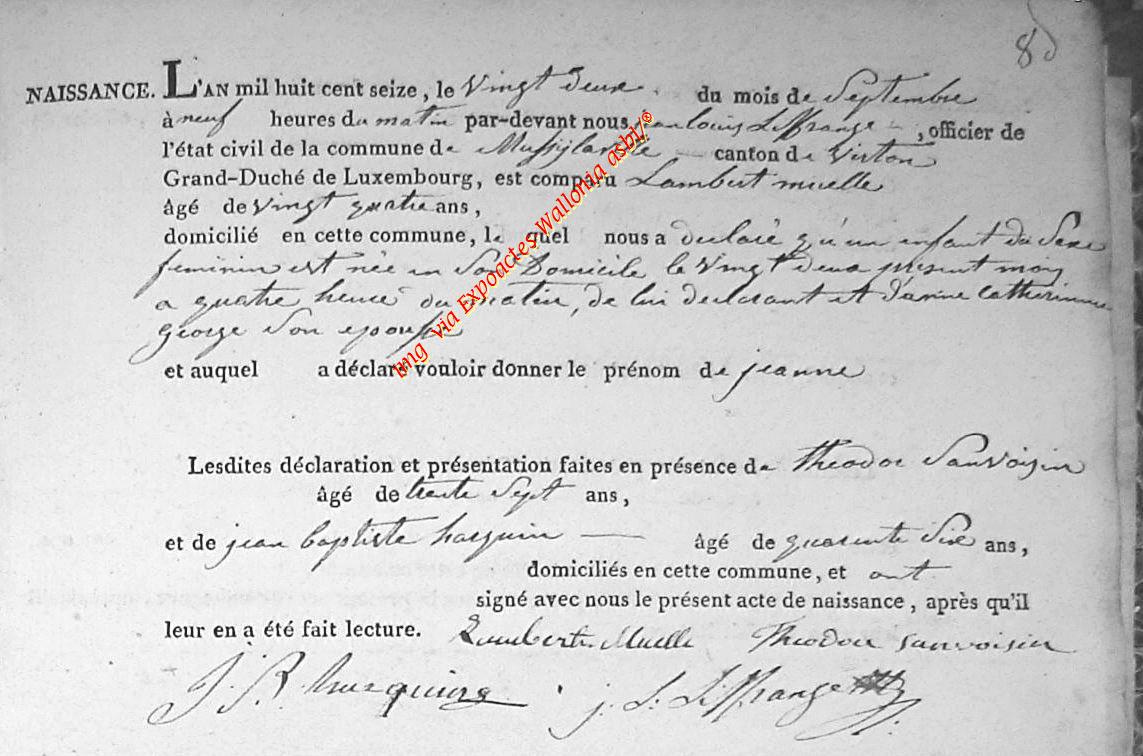 85
NAISSANCE. L'AN mil huit cent seize, le Vingt deux du mois de Septembre
à neuf heures du matin par-devant nous jean louis Liffrange, officier de
l'état civil de la commune de canton de Virton
Grand-Duché de Luxembourg, est comparu Lambert muelle
âgé de Vingt quatre ans,
domicilié en cette commune, le quel nous a declaré qu'un enfant du Sexe
feminin est née en Son Domicile le Vingt deux present mois
a quatre heure du matin, de lui declarant et d'anne Catherinne
George Son epouse
et auquel a déclaré vouloir donner le prénom de jeanne
Lesdites déclaration et présentation faites en présence de Theodor Sauvoisin
âgé de trente Sept ans,
et de jean baptiste harquin âgé de quarente Six ans,
domiciliés en cette commune, et ont
signé avec nous le présent acte de naissance, après qu'il
leur en a été fait lecture. Lambert Muelle Theodor sauvoisin
J. B. j. L. Liffrange
img via Expoactes Wallonia asbl/©